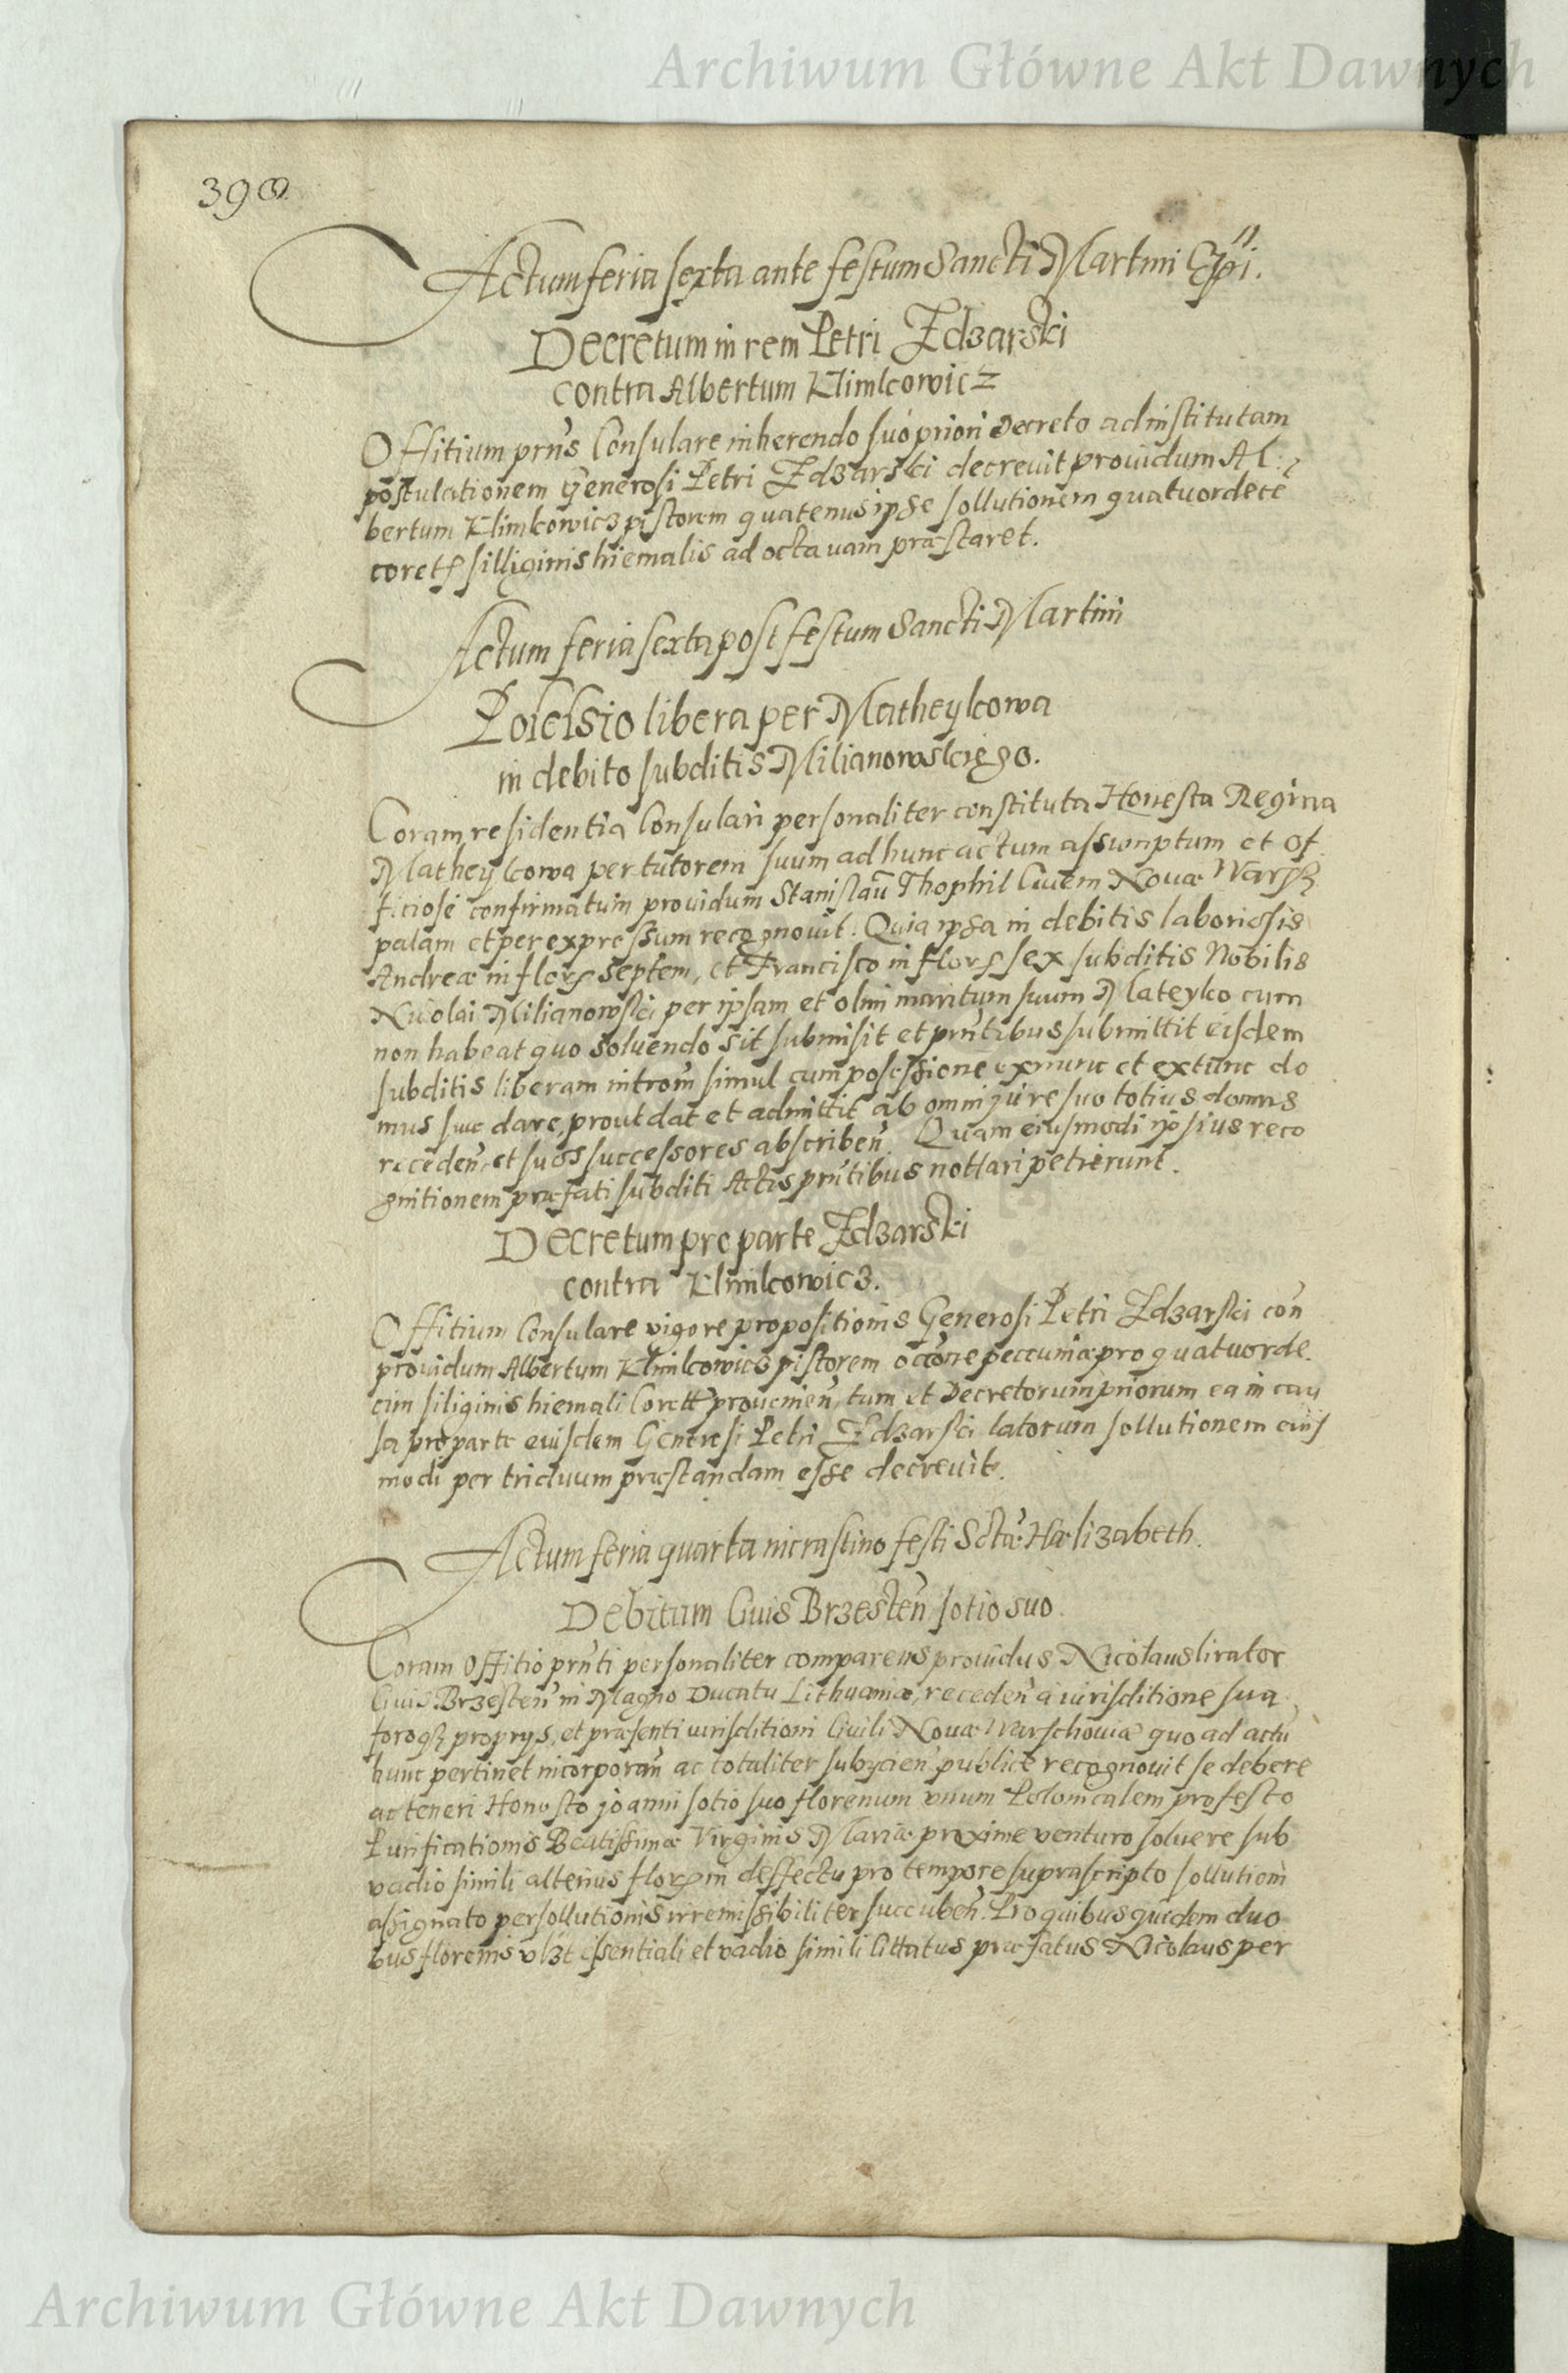 Archiwum Główne Akt Dawnych
398
Actum feria sexta ante festum Sancti Martini Epi.
Decretum in rem Petri Zdzarski
contra Albertum Klimkowicz
Offitium prns Consulare inherendo suo priori Decreto ad institutam
postulationem Generosi Petri Zdzarski decrevit providum Al:
bertum Klimkowicz pistorem quatenus ipse sollutionem quatuordece
coret silliginis hiemalis ad octauam præstaret.
Actum feria sexta post festum Sancti Martini
Possessio libera per Matheykowa
in debito subditis Milianowskiego.
Coram residentia Consulari personaliter constituta Honesta Regina
Matheykowa per tutorem suum ad hunc actum assumptum et Of
ficiose confirmatum prouidum Stanislau Thophil Ciuem Nouæ Warsz
palam et per expressum recognouit. Quia ipsa in debitis laboriosis
Andreæ in flor septem, et Francisco in flor sex subditis Nobilis
Nicolai Milianowski per ipsam et olim maritum suum Mateyko cum
non habeat quo soluendo sit submisit et prntibus submittit eisdem
subditis liberam introm simul cum possessione exnunc et extunc do
mus suæ dare, prout dat et admittit ab omni jure suo totius domus
receden et suos successores abscriben. Quam eiusmodi ipsius reco
gnitionem præfati subditi Actis prntibus nottari petierunt.
Decretum pro parte Zdzarski
contra Klimkowicz.
Offitium Consulare vigore propositionis Generosi Petri Zdzarski con
providum Albertum Klimkowicz pistorem occone peccuniæ pro quatuorde
cim siliginis hiemali Corett prouenien, tum et Decretorum priorum ea in cau
sa pro parte eiusdem Generosi Petri Zdzarski latorum sollutionem eius
modi per triduum præstandam esse decreuit.
Actum feria quarta in crastino festi Sctæ Hælizabeth.
Debitum Ciuis Brzesten sotio suo.
Coram Offitio prnti personaliter comparens prouidus Nicolaus lirator
Ciuis Brzesten in Magno Ducatu Lithuaniæ, receden a iurisditione sua
foroq proprys, et præsenti iurisditioni Ciuili Nouæ Warschouiæ quo ad actu
hunc pertinet incorporan ac totaliter subycien publice recognouit se debere
ac teneri Honesto Joanni sotio suo florenum vnum Polonicalem pro festo
Purificationis Beatissimæ Virginis Mariæ proxime venturo soluere sub
vadio simili alterius flor in deffectu pro tempore suprascripto sollutiom
assignato persollutionis irremissibiliter succuben. Pro quibus quidem duo
bus florenis vlzt essentiali et vadio simili littatus præfatus Nicolaus per
Archiwum Główne Akt Dawnych